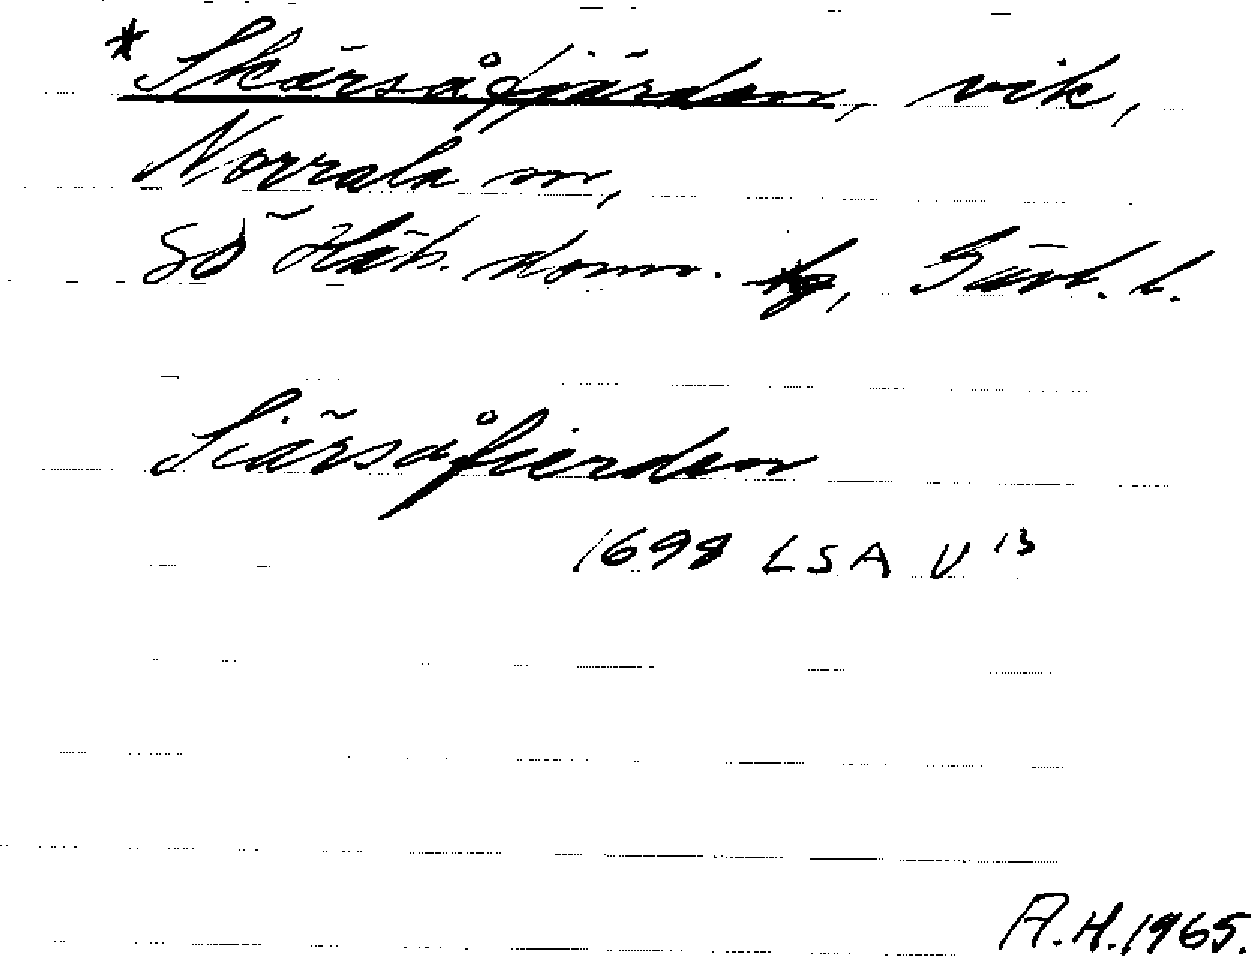 *Skärsåfjärden, vik,
Norrala sn,
SÖ Häls. doms. tg, Gävl. l.
Siärsåfierden
1698 LSA U 13
A.H. 1965.